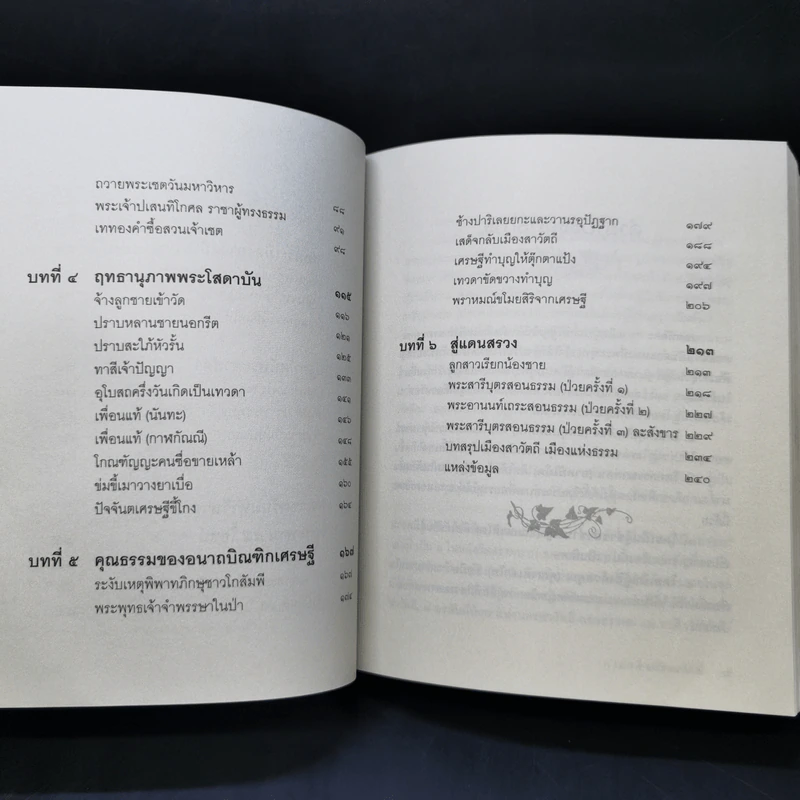 ถวายพระเชตวันมหาวิหาร ๘๘
พระเจ้าปเสนทิโกศล ราชาผู้ทรงธรรม ๙๑
เททองคำซื้อสวนเจ้าเชต ๙๘
บทที่ ๔ ฤทธานุภาพพระโสดาบัน ๑๑๕
จ้างลูกชายเข้าวัด ๑๑๖
ปราบหลานชายนอกรีต ๑๒๑
ปราบสะใภ้หัวรั้น ๑๒๕
ทาสีเจ้าปัญญา ๑๓๙
อุโบสถครึ่งวันเกิดเป็นเทวดา ๑๔๑
เพื่อนแท้ (นันทะ) ๑๔๖
เพื่อนแท้ (กาฬกัณณี) ๑๔๘
โกณฑัญญะคนซื่อขายเหล้า ๑๕๕
ข่มขี้เมาวางยาเบื่อ ๑๖๐
ปัจจันตเศรษฐีขี้โกง ๑๖๔
บทที่ ๕ คุณธรรมของอนาถบิณฑิกเศรษฐี ๑๖๗
ระงับเหตุพิพาทภิกษุชาวโกสัมพี ๑๖๗
พระพุทธเจ้าจำพรรษาในป่า ๑๗๔
ช้างปาริเลยยกะและวานรอุปัฏฐาก ๑๗๙
เสด็จกลับเมืองสาวัตถี ๑๘๘
เศรษฐีทำบุญให้ตุ๊กตาแป้ง ๑๙๔
เทวดาขัดขวางทำบุญ ๑๙๗
พราหมณ์ขโมยสิริจากเศรษฐี ๒๐๖
บทที่ ๖ สู่แดนสรวง ๒๑๓
ลูกสาวเรียกน้องชาย ๒๑๓
พระสารีบุตรสอนธรรม (ป่วยครั้งที่ ๑) ๒๑๘
พระอานนท์เถระสอนธรรม (ป่วยครั้งที่ ๒) ๒๒๗
พระสารีบุตรสอนธรรม (ป่วยครั้งที่ ๓) ละสังขาร ๒๒๙
บทสรุปเมืองสาวัตถี เมืองแห่งธรรม ๒๓๔
แหล่งข้อมูล ๒๔๐